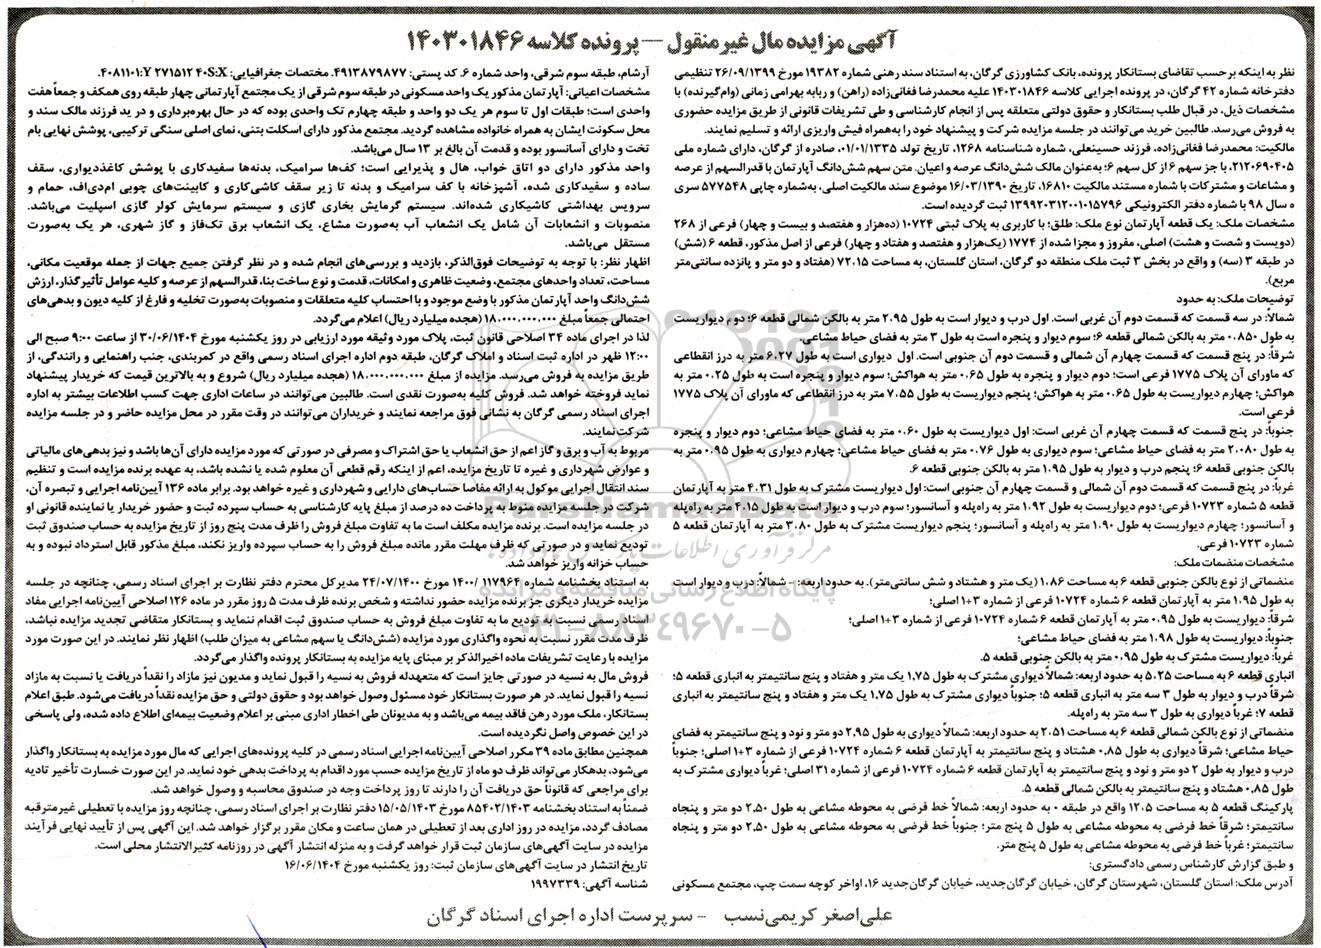 آگهی مزایده مال غیرمنقول — پرونده کلاسه ۱۴۰۳۰۱۸۴۶
نظر به اینکه برحسب تقاضای بستانکار پرونده، بانک کشاورزی گرگان، به استناد سند رهنی شماره ۱۹۳۸۲ مورخ ۲۶/۰۹/۱۳۹۹ تنظیمی
دفترخانه شماره ۴۲ گرگان، در پرونده اجرایی کلاسه ۱۴۰۳۰۱۸۴۶ علیه محمدرضا فغانی‌زاده (راهن) و ربابه بهرامی زمانی (وام‌گیرنده) با
مشخصات ذیل، در قبال طلب بستانکار و حقوق دولتی متعلقه پس از انجام کارشناسی و طی تشریفات قانونی از طریق مزایده حضوری
به فروش می‌رسد. طالبین خرید می‌توانند در جلسه مزایده شرکت و پیشنهاد خود را به‌همراه فیش واریزی ارائه و تسلیم نمایند.
مالکیت: محمدرضا فغانی‌زاده، فرزند حسینعلی، شماره شناسنامه ۱۲۶۸، تاریخ تولد ۰۱/۰۱/۱۳۳۵، صادره از گرگان، دارای شماره ملی
۲۱۲۰۶۹۰۴۰۵، با جز سهم ۶ از کل سهم ۶؛ به‌عنوان مالک شش‌دانگ عرصه و اعیان. متن سهم شش‌دانگ آپارتمان با قدرالسهم از عرصه
و مشاعات و مشترکات با شماره مستند مالکیت ۱۶۸۱۰، تاریخ ۱۶/۰۳/۱۳۹۰ موضوع سند مالکیت اصلی، به‌شماره چاپی ۵۷۷۵۴۸ سری
ه سال ۹۸ با شماره دفتر الکترونیکی ۱۳۹۹۲۰۳۱۲۰۰۱۰۱۵۷۹۶ ثبت گردیده است.
مشخصات ملک: یک قطعه آپارتمان نوع ملک: طلق؛ با کاربری به پلاک ثبتی ۱۰۷۲۴ (ده‌هزار و هفتصد و بیست و چهار) فرعی از ۲۶۸
(دویست و شصت و هشت) اصلی، مفروز و مجزا شده از ۱۷۷۴ (یک‌هزار و هفتصد و هفتاد و چهار) فرعی از اصل مذکور، قطعه ۶ (شش)
در طبقه ۳ (سه) و واقع در بخش ۳ ثبت ملک منطقه دو گرگان، استان گلستان، به مساحت ۷۲.۱۵ (هفتاد و دو متر و پانزده سانتی‌متر
مربع).
توضیحات ملک: به حدود
شمالاً: در سه قسمت که قسمت دوم آن غربی است. اول درب و دیوار است به طول ۲.۹۵ متر به بالکن شمالی قطعه ۶؛ دوم دیواریست
به طول ۰.۸۵۰ متر به بالکن شمالی قطعه ۶؛ سوم دیوار و پنجره است به طول ۳ متر به فضای حیاط مشاعی.
شرقاً: در پنج قسمت که قسمت چهارم آن شمالی و قسمت دوم آن جنوبی است. اول دیواری است به طول ۶.۲۷ متر به درز انقطاعی
که ماورای آن پلاک ۱۷۷۵ فرعی است؛ دوم دیوار و پنجره به طول ۰.۶۵ متر به هواکش؛ سوم دیوار و پنجره است به طول ۰.۲۵ متر به
هواکش؛ چهارم دیواریست به طول ۰.۶۵ متر به هواکش؛ پنجم دیواریست به طول ۷.۵۵ متر به درز انقطاعی که ماورای آن پلاک ۱۷۷۵
فرعی است.
جنوباً: در پنج قسمت که قسمت چهارم آن غربی است: اول دیواریست به طول ۰.۶۰ متر به فضای حیاط مشاعی؛ دوم دیوار و پنجره
به طول ۲.۰۸۰ متر به فضای حیاط مشاعی؛ سوم دیواری به طول ۰.۷۶ متر به فضای حیاط مشاعی؛ چهارم دیواری به طول ۰.۹۵ متر به
بالکن جنوبی قطعه ۶؛ پنجم درب و دیوار به طول ۱.۹۵ متر به بالکن جنوبی قطعه ۶.
غرباً: در پنج قسمت که قسمت دوم آن شمالی و قسمت چهارم آن جنوبی است: اول دیواریست مشترک به طول ۴.۳۱ متر به آپارتمان
قطعه ۵ شماره ۱۰۷۲۳ فرعی؛ دوم دیواریست به طول ۱.۹۲ متر به راه‌پله و آسانسور؛ سوم درب و دیوار است به طول ۴.۱۵ متر به راه‌پله
و آسانسور؛ چهارم دیواریست به طول ۱.۹۰ متر به راه‌پله و آسانسور؛ پنجم دیواریست مشترک به طول ۳.۸۰ متر به آپارتمان قطعه ۵
شماره ۱۰۷۲۳ فرعی.
مشخصات منضمات ملک:
منضماتی از نوع بالکن جنوبی قطعه ۶ به مساحت ۱.۸۶ (یک متر و هشتاد و شش سانتی‌متر). به حدود اربعه: - شمالاً: درب و دیوار است
به طول ۱.۹۵ متر به آپارتمان قطعه ۶ شماره ۱۰۷۲۴ فرعی از شماره ۱+۳ اصلی؛
شرقاً: دیواریست به طول ۰.۹۵ متر به آپارتمان قطعه ۶ شماره ۱۰۷۲۴ فرعی از شماره ۱+۳ اصلی؛
جنوباً: دیواریست به طول ۱.۹۸ متر به فضای حیاط مشاعی؛
غرباً: دیواریست مشترک به طول ۰.۹۵ متر به بالکن جنوبی قطعه ۵.
انباری قطعه ۶ به مساحت ۵.۲۵ به حدود اربعه: شمالاً دیواری مشترک به طول ۱.۷۵ یک متر و هفتاد و پنج سانتیمتر به انباری قطعه ۵؛
شرقاً درب و دیوار به طول ۳ سه متر به انباری قطعه ۵؛ جنوباً دیواری مشترک به طول ۱.۷۵ یک متر و هفتاد و پنج سانتیمتر به انباری
قطعه ۷؛ غرباً دیواری به طول ۳ سه متر به راه‌پله.
منضماتی از نوع بالکن شمالی قطعه ۶ به مساحت ۲.۵۱ به حدود اربعه: شمالاً دیواری به طول ۲.۹۵ دو متر و نود و پنج سانتیمتر به فضای
حیاط مشاعی؛ شرقاً دیواری به طول ۰.۸۵ هشتاد و پنج سانتیمتر به آپارتمان قطعه ۶ شماره ۱۰۷۲۴ فرعی از شماره ۱+۳ اصلی؛ جنوباً
درب و دیوار به طول ۲ دو متر و نود و پنج سانتیمتر به آپارتمان قطعه ۶ شماره ۱۰۷۲۴ فرعی از شماره ۳۱ اصلی؛ غرباً دیواری مشترک به
طول ۰.۸۵ هشتاد و پنج سانتیمتر به بالکن شمالی قطعه ۵.
پارکینگ قطعه ۵ به مساحت ۱۲.۵ واقع در طبقه ۰ به حدود اربعه: شمالاً خط فرضی به محوطه مشاعی به طول ۲.۵۰ دو متر و پنجاه
سانتیمتر؛ شرقاً خط فرضی به محوطه مشاعی به طول ۵ پنج متر؛ جنوباً خط فرضی به محوطه مشاعی به طول ۲.۵۰ دو متر و پنجاه
سانتیمتر؛ غرباً خط فرضی به محوطه مشاعی به طول ۵ پنج متر.
و طبق گزارش کارشناس رسمی دادگستری:
آدرس ملک: استان گلستان، شهرستان گرگان، خیابان گرگان‌جدید، خیابان گرگان‌جدید ۱۶، اواخر کوچه سمت چپ، مجتمع مسکونی
آرشام، طبقه سوم شرقی، واحد شماره ۶. کد پستی: ۴۹۱۳۸۷۹۸۷۷. مختصات جغرافیایی: ۴۰S:X ۲۷۱۵۱۲ ۴۰۸۱۱۰۱:Y.
مشخصات اعیانی: آپارتمان مذکور یک واحد مسکونی در طبقه سوم شرقی از یک مجتمع آپارتمانی چهار طبقه روی همکف و جمعاً هفت
واحدی است؛ طبقات اول تا سوم هر یک دو واحد و طبقه چهارم تک واحدی بوده که در حال بهره‌برداری و در ید فرزند مالک سند و
محل سکونت ایشان به همراه خانواده مشاهده گردید. مجتمع مذکور دارای اسکلت بتنی، نمای اصلی سنگی ترکیبی، پوشش نهایی بام
تخت و دارای آسانسور بوده و قدمت آن بالغ بر ۱۳ سال می‌باشد.
واحد مذکور دارای دو اتاق خواب، هال و پذیرایی است؛ کف‌ها سرامیک، بدنه‌ها سفیدکاری با پوشش کاغذدیواری، سقف
ساده و سفیدکاری شده، آشپزخانه با کف سرامیک و بدنه تا زیر سقف کاشی‌کاری و کابینت‌های چوبی ام‌دی‌اف، حمام و
سرویس بهداشتی کاشیکاری شده‌اند. سیستم گرمایش بخاری گازی و سیستم سرمایش کولر گازی اسپلیت می‌باشد.
منصوبات و انشعابات آن شامل یک انشعاب آب به‌صورت مشاع، یک انشعاب برق تک‌فاز و گاز شهری، هر یک به‌صورت
مستقل می‌باشد.
اظهار نظر: با توجه به توضیحات فوق‌الذکر، بازدید و بررسی‌های انجام شده و در نظر گرفتن جمیع جهات از جمله موقعیت مکانی،
مساحت، تعداد واحدهای مجتمع، وضعیت ظاهری و امکانات، قدمت و نوع ساخت بنا، قدرالسهم از عرصه و کلیه عوامل تأثیرگذار، ارزش
شش‌دانگ واحد آپارتمان مذکور با وضع موجود و با احتساب کلیه متعلقات و منصوبات به‌صورت تخلیه و فارغ از کلیه دیون و بدهی‌های
احتمالی جمعاً مبلغ ۱۸.۰۰۰.۰۰۰.۰۰۰ (هجده میلیارد ریال) اعلام می‌گردد.
لذا در اجرای ماده ۳۴ اصلاحی قانون ثبت، پلاک مورد وثیقه مورد ارزیابی در روز یکشنبه مورخ ۳۰/۰۶/۱۴۰۴ از ساعت ۹:۰۰ صبح الی
۱۲:۰۰ ظهر در اداره ثبت اسناد و املاک گرگان، طبقه دوم اداره اجرای اسناد رسمی واقع در کمربندی، جنب راهنمایی و رانندگی، از
طریق مزایده به فروش می‌رسد. مزایده از مبلغ ۱۸.۰۰۰.۰۰۰.۰۰۰ (هجده میلیارد ریال) شروع و به بالاترین قیمت که خریدار پیشنهاد
نماید فروخته خواهد شد. فروش کلیه به‌صورت نقدی است. طالبین می‌توانند در ساعات اداری جهت کسب اطلاعات بیشتر به اداره
اجرای اسناد رسمی گرگان به نشانی فوق مراجعه نمایند و خریداران می‌توانند در وقت مقرر در محل مزایده حاضر و در جلسه مزایده
شرکت نمایند.
مربوط به آب و برق و گاز اعم از حق انشعاب یا حق اشتراک و مصرفی در صورتی که مورد مزایده دارای آن‌ها باشد و نیز بدهی‌های مالیاتی
و عوارض شهرداری و غیره تا تاریخ مزایده، اعم از اینکه رقم قطعی آن معلوم شده یا نشده باشد، به عهده برنده مزایده است و تنظیم
سند انتقال اجرایی موکول به ارائه مفاصا حساب‌های دارایی و شهرداری و غیره خواهد بود. برابر ماده ۱۳۶ آیین‌نامه اجرایی و تبصره آن،
شرکت در جلسه مزایده منوط به پرداخت ده درصد از مبلغ پایه کارشناسی به حساب سپرده ثبت و حضور خریدار یا نماینده قانونی او
در جلسه مزایده است. برنده مزایده مکلف است ما به تفاوت مبلغ فروش را ظرف مدت پنج روز از تاریخ مزایده به حساب صندوق ثبت
تودیع نماید و در صورتی که ظرف مهلت مقرر مانده مبلغ فروش را به حساب سپرده واریز نکند، مبلغ مذکور قابل استرداد نبوده و به
حساب خزانه واریز خواهد شد.
به استناد بخشنامه شماره ۱۱۷۹۶۴/۱۴۰۰ مورخ ۲۴/۰۷/۱۴۰۰ مدیرکل محترم دفتر نظارت بر اجرای اسناد رسمی، چنانچه در جلسه
مزایده خریدار دیگری جز برنده مزایده حضور نداشته و شخص برنده ظرف مدت ۵ روز مقرر در ماده ۱۲۶ اصلاحی آیین‌نامه اجرایی مفاد
اسناد رسمی نسبت به تودیع ما به تفاوت مبلغ فروش به حساب صندوق ثبت اقدام ننماید و بستانکار متقاضی تجدید مزایده نباشد،
ظرف مدت مقرر نسبت به نحوه واگذاری مورد مزایده (شش‌دانگ یا سهم مشاعی به میزان طلب) اظهار نظر نمایند. در این صورت مورد
مزایده با رعایت تشریفات ماده اخیرالذکر بر مبنای پایه مزایده به بستانکار پرونده واگذار می‌گردد.
فروش مال به نسیه در صورتی جایز است که متعهدله فروش به نسیه را قبول نماید و مدیون نیز مازاد را نقداً دریافت یا نسبت به مازاد
نسیه را قبول نماید. در هر صورت بستانکار خود مسئول وصول خواهد بود و حقوق دولتی و حق مزایده نقداً دریافت می‌شود. طبق اعلام
بستانکار، ملک مورد رهن فاقد بیمه می‌باشد و به مدیونان طی اخطار اداری مبنی بر اعلام وضعیت بیمه‌ای اطلاع داده شده، ولی پاسخی
در این خصوص واصل نگردیده است.
همچنین مطابق ماده ۳۹ مکرر اصلاحی آیین‌نامه اجرایی اسناد رسمی در کلیه پرونده‌های اجرایی که مال مورد مزایده به بستانکار واگذار
می‌شود، بدهکار می‌تواند ظرف دو ماه از تاریخ مزایده حسب مورد اقدام به پرداخت بدهی خود نماید. در این صورت خسارت تأخیر تادیه
برای مراجعی که قانوناً حق دریافت آن را دارند تا روز پرداخت وجه در صندوق محاسبه و وصول خواهد شد.
ضمناً به استناد بخشنامه ۸۵۴۰۲/۱۴۰۳ مورخ ۱۵/۰۵/۱۴۰۳ دفتر نظارت بر اجرای اسناد رسمی، چنانچه روز مزایده با تعطیلی غیرمترقبه
مصادف گردد، مزایده در روز اداری بعد از تعطیلی در همان ساعت و مکان مقرر برگزار خواهد شد. این آگهی پس از تأیید نهایی فرآیند
مزایده در سایت آگهی‌های سازمان ثبت قرار خواهد گرفت و به منزله انتشار آگهی در روزنامه کثیرالانتشار محلی است.
تاریخ انتشار در سایت آگهی‌های سازمان ثبت: روز یکشنبه مورخ ۱۶/۰۶/۱۴۰۴
شناسه آگهی: ۱۹۹۷۳۳۹
علی‌اصغر کریمی‌نسب - سرپرست اداره اجرای اسناد گرگان
پایگاه اطلاع رسانی مناقصه و مزایده
۰۲۱-۸۸۳۴۹۶۷۰-۵